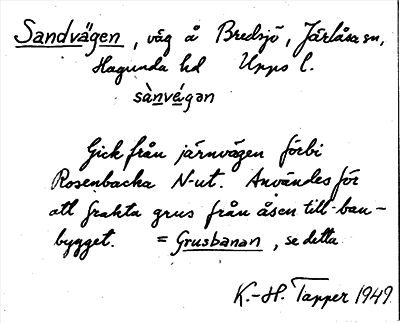 Sandvägen, väg å Bredsjö, Järlåsa sn,
Hagunda hd Upps l.
sànvégən
Gick från järnvägen förbi
Rosenbacka N-ut. Användes för
att frakta grus från åsen till ban-
bygget. = Grusbanan, se detta
K.-H. Tapper 1949.